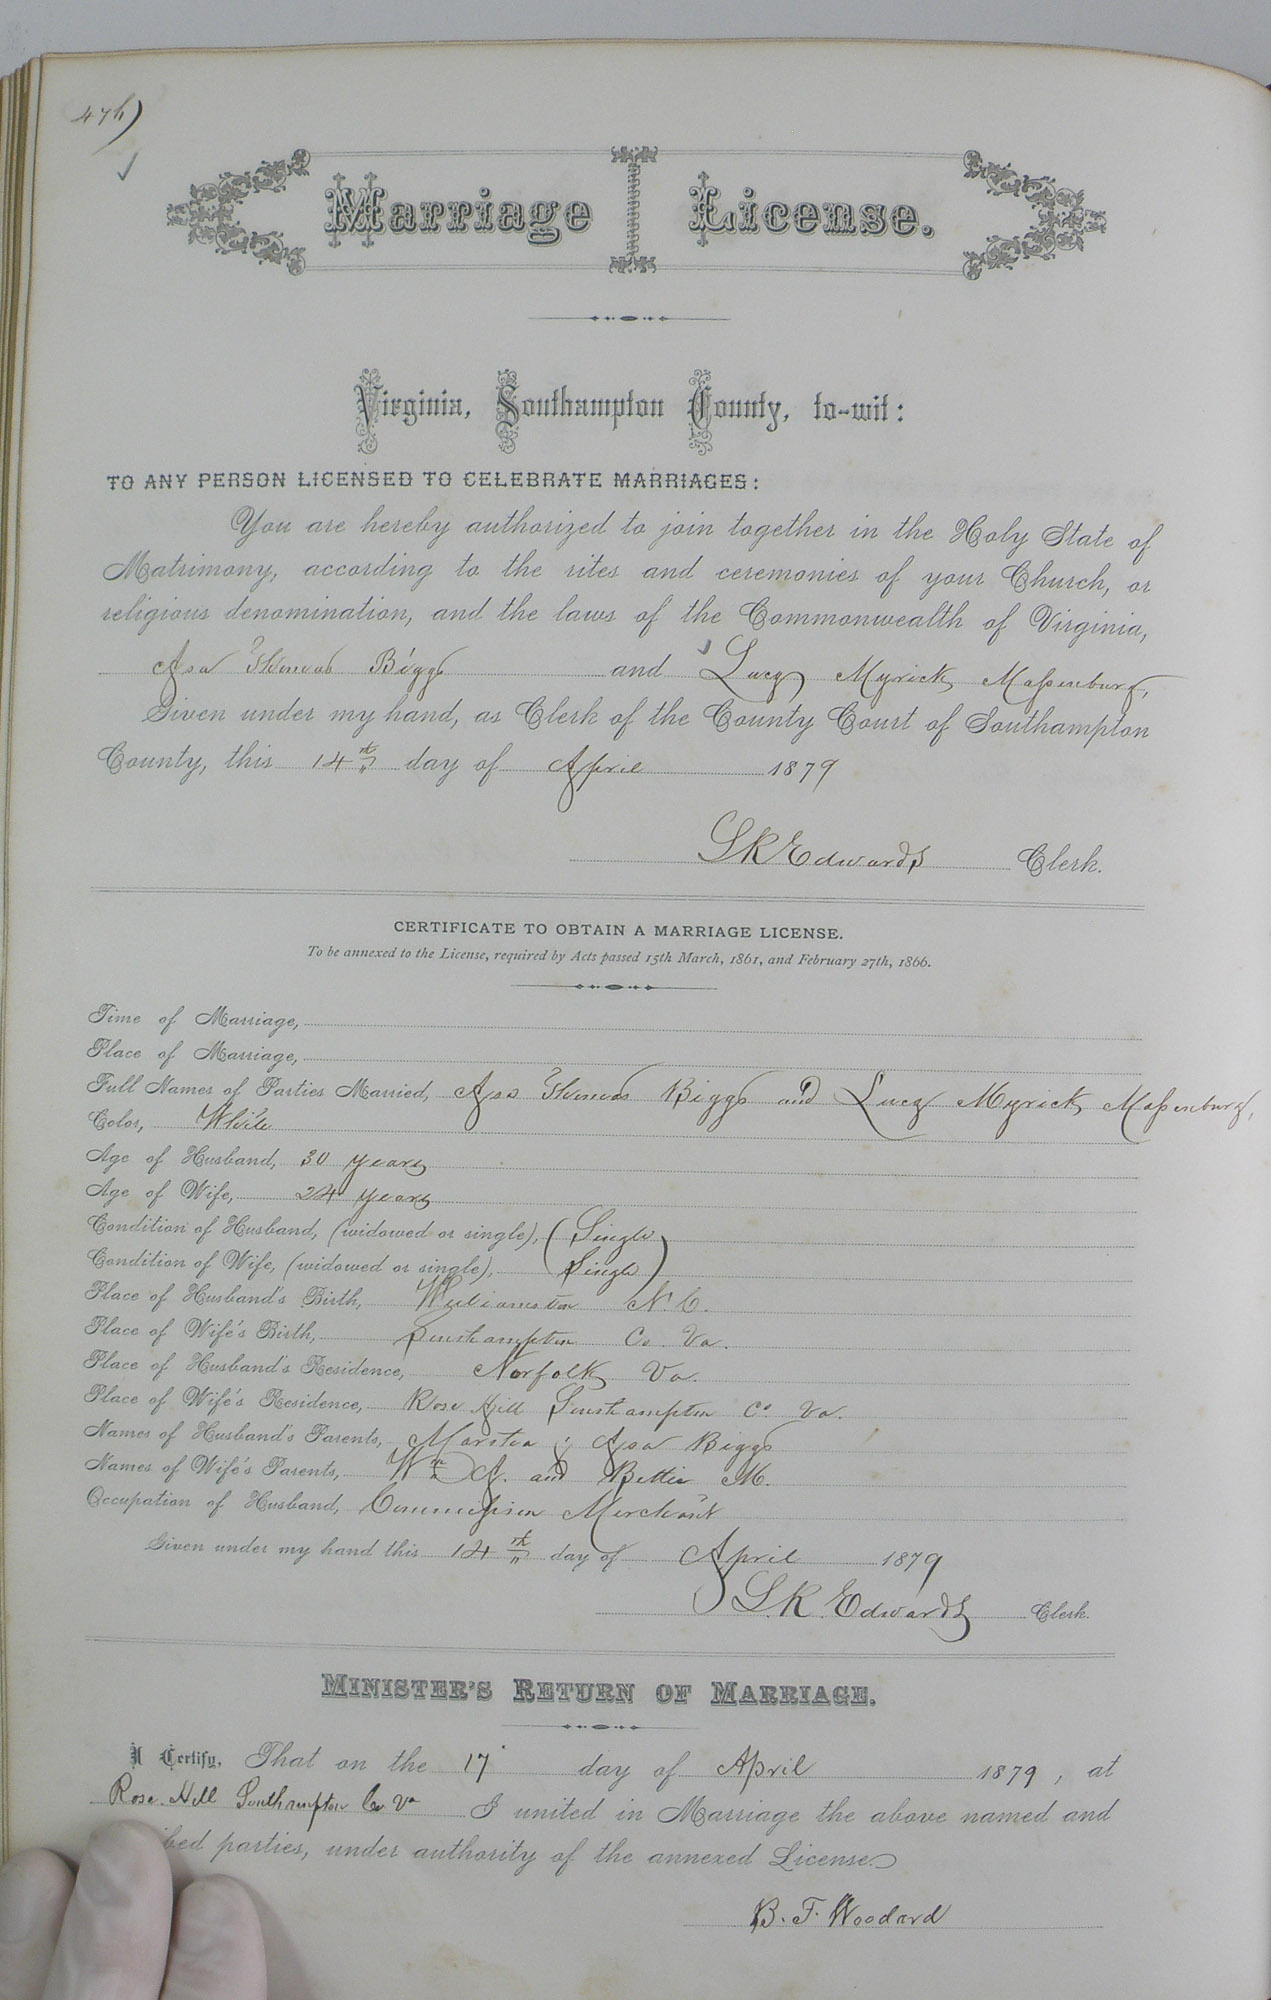 Marriage License.
Virginia, Southampton County, to-wit:
TO ANY PERSON LICENSED TO CELEBRATE MARRIAGES:
You are hereby authorized to join together in the Holy State of
Matrimony, according to the rites and ceremonies of your Church, or
religious denomination, and the laws of the Commonwealth of Virginia,
Asa Thomas Biggs and Lucy Myrick Massenburg,
Given under my hand, as Clerk of the County Court of Southampton
County, this 14th day of April 1879
L R Edwards Clerk.
CERTIFICATE TO OBTAIN A MARRIAGE LICENSE.
To be annexed to the License, required by Acts passed 15th March, 1861, and February 27th, 1866.
Time of Marriage,
Place of Marriage,
Full Names of Parties Married, Asa Thomas Biggs and Lucy Myrick Massenburg,
Color, White
Age of Husband, 30 years
Age of Wife, 24 years
Condition of Husband, (widowed or single), (Single
Condition of Wife, (widowed or single), Single)
Place of Husband's Birth, Williamston N.C.
Place of Wife's Birth, Southampton Co. Va.
Place of Husband's Residence, Norfolk Va.
Place of Wife's Residence, Rose Hill Southampton Co Va.
Names of Husband's Parents, Asa Biggs
Names of Wife's Parents, Wm A. and Bettie M.
Occupation of Husband, Commission Merchant
Given under my hand this 14th day of April 1879
L. R. Edwards Clerk.
MINISTER'S RETURN OF MARRIAGE.
I Certify, That on the 17 day of April 1879, at
Rose Hill Southampton Co Va I united in Marriage the above named and
ibed parties, under authority of the annexed License.
B. F. Woodard